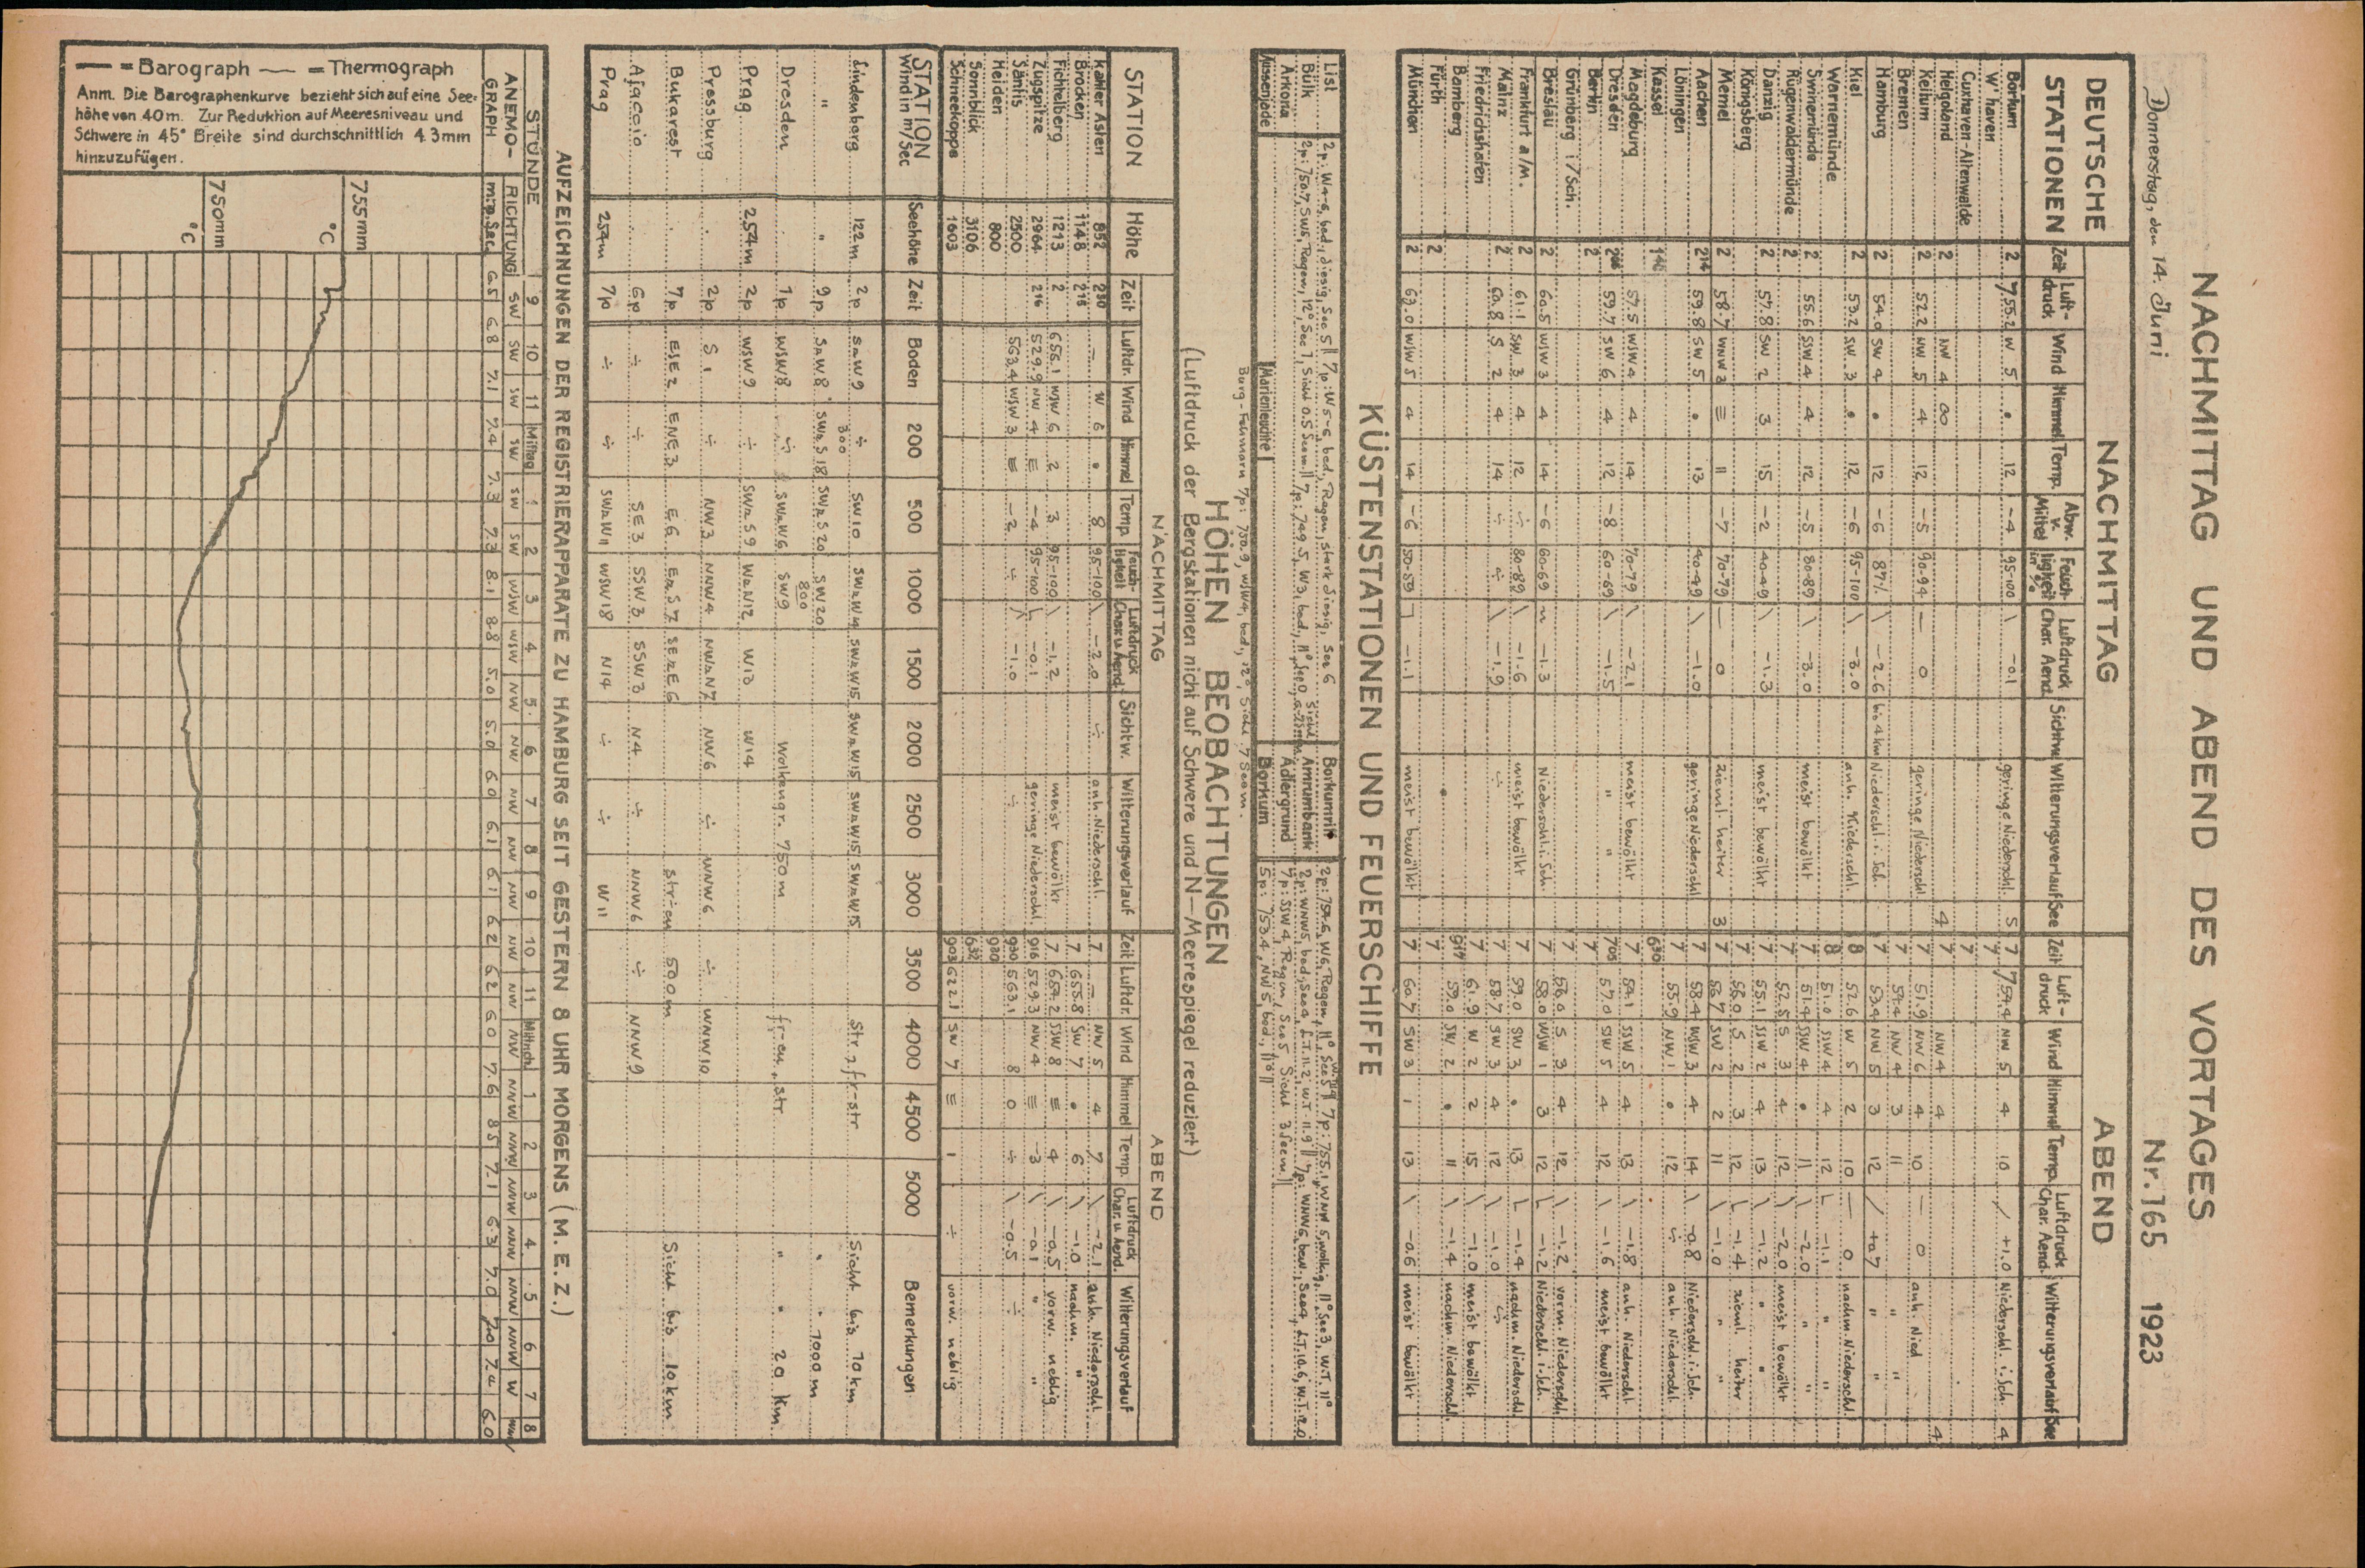 NACHMITTAG UND ABEND DES VORTAGES
Donnerstag, den 14. Juni Nr. 165 1923
DEUTSCHE STATIONEN NACHMITTAG ABEND
Zeit Luft-druck Wind Himmel Temp. Abw. v. Mittel Feuch-tigkeit in % Luftdruck Char. Aend. Sichtw. Witterungsverlauf See Zeit Luft-druck Wind Himmel Temp. Luftdruck Char. Aend. Witterungsverlauf See
Borkum 2 755.2 W 5 • 12 -4 95-100 \ -0.1 geringe Niederschl. 5 7 754.4 NW 5 4 10 / +1.0 Niederschl. i. Sch. 4
W'haven 7
Cuxhaven-Altenwalde 7
Helgoland 2 NW 4 ∞ 4 7 NW 4 4 4
Keitum 2 52.2 NW 5 4 12 -5 90-94 — 0 geringe Niederschl. 7 51.9 NW 6 4 10 — 0 anh. Nied
Bremen 7 54.4 NW 4 3 11 " "
Hamburg 2 54.0 SW 4 • 12 -6 87% \ -2.6 bis 4 km Niederschl. i. Sch. 7 53.4 NW 5 3 12 / +0.7 " "
Kiel 2 53.2 SW 3 • 12 -6 95-100 \ -3.0 anh. Niederschl. 8 52.6 W 5 2 10 — 0 nachm. Niederschl.
Warnemünde 8 51.0 SSW 4 4 12 L -1.1 " "
Swinemünde 2 55.6 SSW 4 4 12 -5 80-89 \ -3.0 meist bewölkt 7 51.4 SSW 4 • 11 \ -2.0 " "
Rügenwaldermünde 2 7 52.5 S 3 4 12 \ -2.0 meist bewölkt
Danzig 2 57.8 SW 2 3 15 -2 40-49 \ -1.3 meist bewölkt 7 55.1 SSW 2 4 13 \ -1.2 " "
Königsberg 7 56.0 S 2 3 12 L -1.4 zieml. heiter
Memel 2 58.7 WNW 3 ≡ 11 -7 70-79 — 0 zieml. heiter 3 7 56.7 SW 2 2 11 \ -1.0 " "
Aachen 2¹⁴ 59.8 SW 5 • 13 40-49 \ -1.0 geringe Niederschl 7 58.4 WSW 3 4 14 \ -0.8 Niederschl. i. Sch.
Löningen 7 55.9 NW 1 • 12 ÷ anh. Niederschl.
Kassel 6³⁰
Magdeburg 57.5 WSW 4 4 14 70-79 \ -2.1 meist bewölkt 7 54.1 SSW 5 4 13 \ -1.8 anh. Niederschl
Dresden 59.7 SW 6 4 12 -8 60-69 \ -1.5 " " 7⁰⁵ 57.0 SW 5 4 12 \ -1.6 meist bewölkt
Berlin 2 7
Grünberg i/Sch. 7 56.0 S 3 4 12 \ -1.2 vorm. Niederschl.
Breslau 2 60.5 WSW 3 4 14 -6 60-69 ~ -1.3 Niederschl. i. Sch. 7 58.0 WSW 1 3 12 L -1.2 Niederschl. i. Sch.
Frankfurt a/M. 2 61.1 SW 3 4 12 ÷ 80-89 \ -1.6 meist bewölkt 7 59.0 SW 3 • 13 L -1.4 nachm. Niederschl.
Mainz 2 60.8 S 2 4 14 ÷ ÷ \ -1.9 ÷ 7 58.7 SW 3 4 12 \ -1.0 ÷
Friedrichshafen 7 61.9 W 2 2 15 \ -1.0 meist bewölkt
Bamberg 59.0 SW 2 • 11 \ -1.4 nachm. Niederschl.
Fürth 2 7
München 2 63.0 WSW 5 4 14 -6 50-59 ¬ -1.1 meist bewölkt 7 60.7 SW 3 1 13 \ -0.6 meist bewölkt
KÜSTENSTATIONEN UND FEUERSCHIFFE
List 2p. W 4-5, bed., diesig, See 5 || 7p: W 5-6 bed., Regen, stark diesig, See 6 Borkumriff 2p: 754.6, W6, Regen, 11° See 5 || 7p: 755.1, WNW 5, wolkig, 11° See 3, W.T. 11°
Bülk 2p: 750.7, SW5, Regen, 12° See 1 Sicht 0.5 Seem || 7p: 749.5, W3, bed., 11° See 0, Sicht Amrumbank 2p: WNW5 bed., See 4, L.T. 11.2 W.T. 11.9 || 7p: WNW6, bew., See 4, L.T. 10.6, W.T.
Arkona Adlergrund 7p: SSW 4, Regen, See 5 Sicht 3 Seem ||
Aussenjade Marienleuchte Borkum 5p: 753.4, NW 5, bed., 11°6 ||
Burg-Fehmarn 7p: 750.9, WSW4, bed., 12°, Sicht 7 Seem.
HÖHEN BEOBACHTUNGEN
(Luftdruck der Bergstationen nicht auf Schwere und N—Meerespiegel reduziert)
STATION Höhe NACHMITTAG ABEND
Zeit Luftdr. Wind Himmel Temp Feuch-tigkeit Luftdruck Char. u. Aend. Sichtw. Witterungsverlauf Zeit Luftdr. Wind Himmel Temp. Luftdruck Char. u. Aend. Witterungsverlauf
Kahler Asten 852 2³⁰ — W 6 • 8 95-100 \ -2.0 ÷ anh. Niederschl. 7 — NW 5 4 7 \ -2.1 anh. Niederschl.
Brocken 1148 2¹⁵ 7 655.8 SW 7 • 6 \ -1.0 nachm. "
Fichtelberg 1213 2 656.1 WSW 6 2 3 95-100 \ -1.2 meist bewölkt 7 654.2 SSW 8 ≡ 4 \ -0.5 vorw. neblig
Zugspitze 2964 2¹⁶ 529.9 NW 4 ≡ -4 95-100 L -0.1 geringe Niederschl 9¹⁶ 529.3 NW 4 ≡ -3 \ -0.1 " "
Säntis 2500 563.4 WSW 3 ≡ -2 ÷ /\ -1.0 ÷ 9³⁰ 563.1 8 0 ÷ \ -0.5 ÷
Heiden 800 9³⁰
Sonnblick 3106
Schneekoppe 1603 9⁰³ 622.1 SW 7 ≡ 1 ÷ vorw. neblig
STATION Wind in m/Sec Seehöhe Zeit Boden 200 500 1000 1500 2000 2500 3000 3500 4000 4500 5000 Bemerkungen
Lindenberg 122 m 2p SzW 9 ÷ SW 10 SWzW 14 SWzW 15 SWzW 15 SWzW 15 SWzW 15 Str, fr-str Sicht bis 70 km
" " 9p SzW 8 300 SWzS 18 SWzS 20 SW 20 " " 7000 m
Dresden 1p WSW 8 ÷ SWzW 6 SW 9 800 Wolkengr. 750 m fr-cu, str. " " 20 Km
Prag 254 m 2p WSW 9 ÷ SWzS 9 WzN 12 W 13 W 14
Pressburg 2p S 1 ÷ NW 3 NNW 4 NWzN 7 NW 6 ÷ WNW 6 ÷ WNW 10
Bukarest 7p ESE 2 ENE 3 E 6 EzS 7 SEzE 6 str-cu 500 m Sicht bis 10 km
Ajaccio 6p ÷ ÷ SE 3 SSW 3 SSW 3 N 4 ÷ NNW 6 ÷ NNW 9
Prag 254 m 7p ÷ ÷ SWzW 11 WSW 18 N 14 ÷ ÷ W 11
AUFZEICHNUNGEN DER REGISTRIERAPPARATE ZU HAMBURG SEIT GESTERN 8 UHR MORGENS (M. E. Z.)
STUNDE 9 10 11 Mittag 1 2 3 4 5 6 7 8 9 10 11 Mittncht 1 2 3 4 5 6 7 8
ANEMO-GRAPH RICHTUNG SW SW SW SW SW SW WSW WSW NW NW NW NW NW NW NW NW NNW NNW NNW NNW NNW NNW W
m. p. Sec. 6.5 6.8 7.1 7.4 7.3 7.3 8.1 8.8 5.0 5.0 6.0 6.1 6.1 6.2 6.2 6.0 7.6 8.5 7.1 6.3 7.0 7.0 7.4 6.0
— = Barograph — = Thermograph
Anm. Die Barographenkurve bezieht sich auf eine See-
höhe von 40 m. Zur Reduktion auf Meeresniveau und
Schwere in 45° Breite sind durchschnittlich 4.3 mm
hinzuzufügen.
755 mm °C
750 mm °C